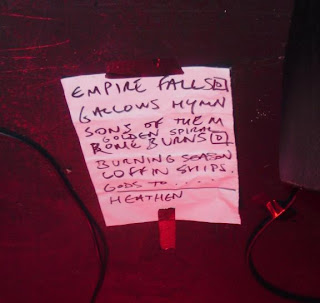 EMPIRE FALLS D
GALLOWS HYMN
SONS OF THE M
GOLDEN SPIRAL
ROME BURNS D
BURNING SEASON
COFFIN SHIPS.
GODS TO.....
HEATHEN